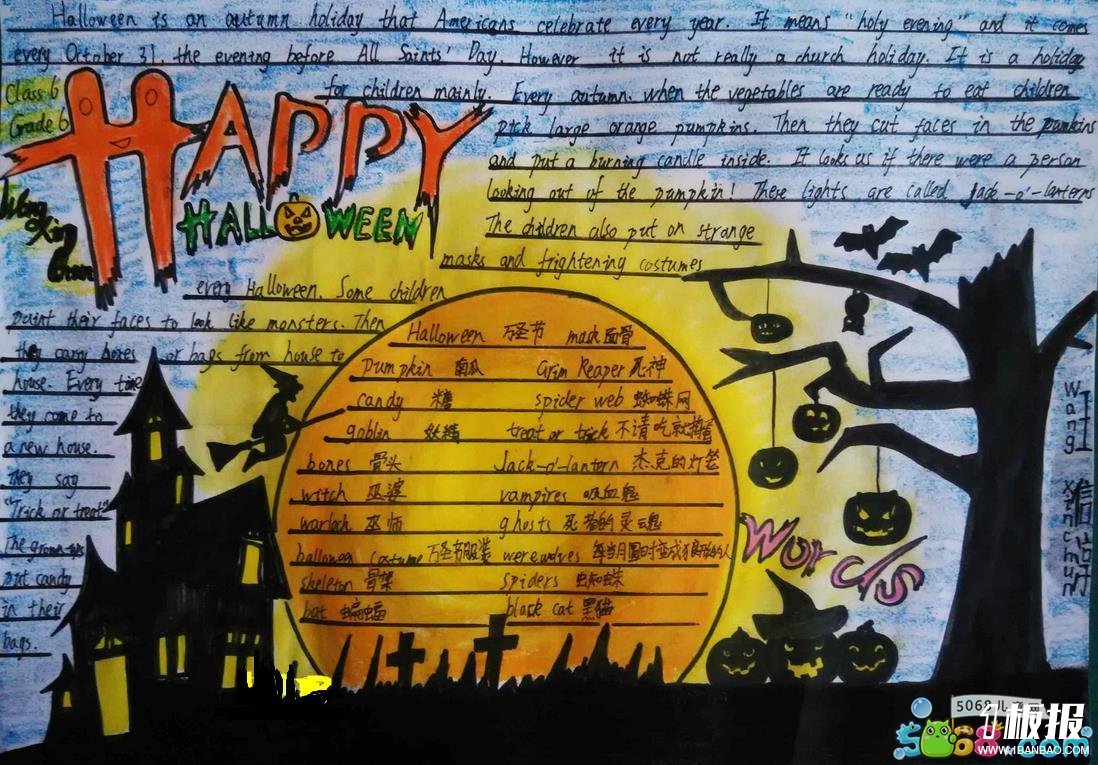 Halloween is an autumn holiday that Americans celebrate every year. It means "holy evening" and it comes
every October 31, the evening before All Saints' Day. However it is not really a church holiday. It is a holiday
for children mainly. Every autumn. when the vegetables are ready to eat children
pick large orange pumpkins. Then they cut faces in the
and put a burning candle inside. It looks as if there were a person
looking out of the pumpkin! These lights are called Jack-o'-lanterns
The children also put on strange
masks and frightening costumes
every Halloween. Some children
paint their faces to look like monsters. Then
they carry boxes or bags from house to
house. Every time
they come to
a new house.
they say
"Trick or treat"
The grown-ups
put candy
in their
bags.
Class 6
Grade 6
HAPPY
HALLOWEEN
Halloween 万圣节 mask 面骨
Pumpkin 南瓜 Grim Reaper 死神
candy 糖 spider web 蜘蛛网
goblin 妖精 treat or trick 不请吃就捣蛋
bones 骨头 Jack-o'-lantern 杰克的灯笼
witch 巫婆 vampires 吸血鬼
warlock 巫师 ghosts 死者的灵魂
halloween costume 万圣节服装 werewolves
skeleton 骨架 spiders
bat 蝙蝠 black cat 黑猫
Words
Wang Xinchun
王
5068儿童网
5068.com
板报
WWW.1BANBAO.COM